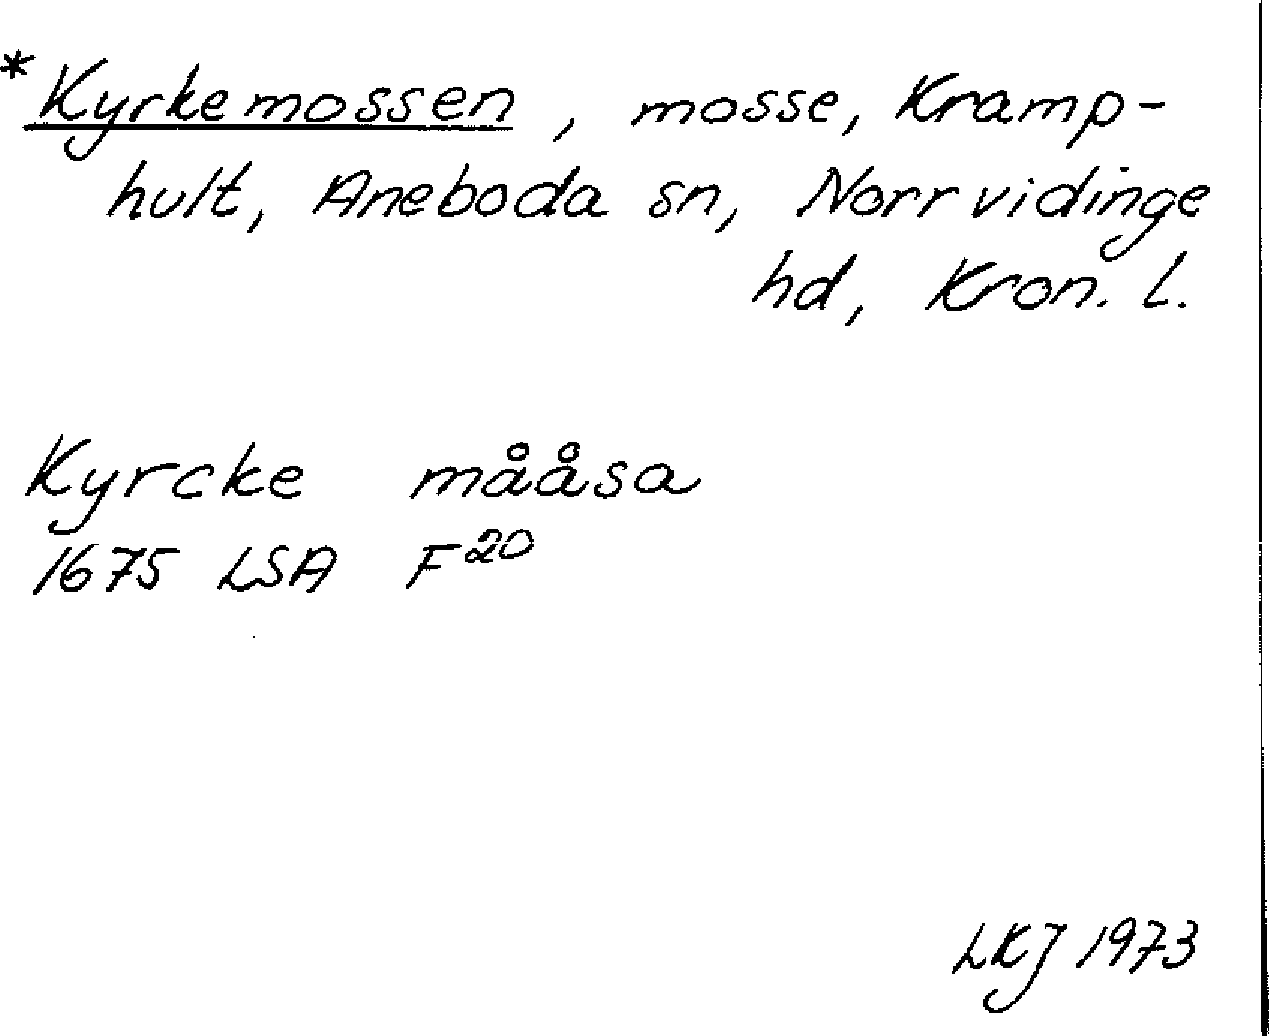 *Kyrkemossen, mosse, Kramp-
hult, Aneboda sn, Norrvidinge
hd, Kron. l.
Kyrcke mååsa
1675 LSA F20
LKJ 1973